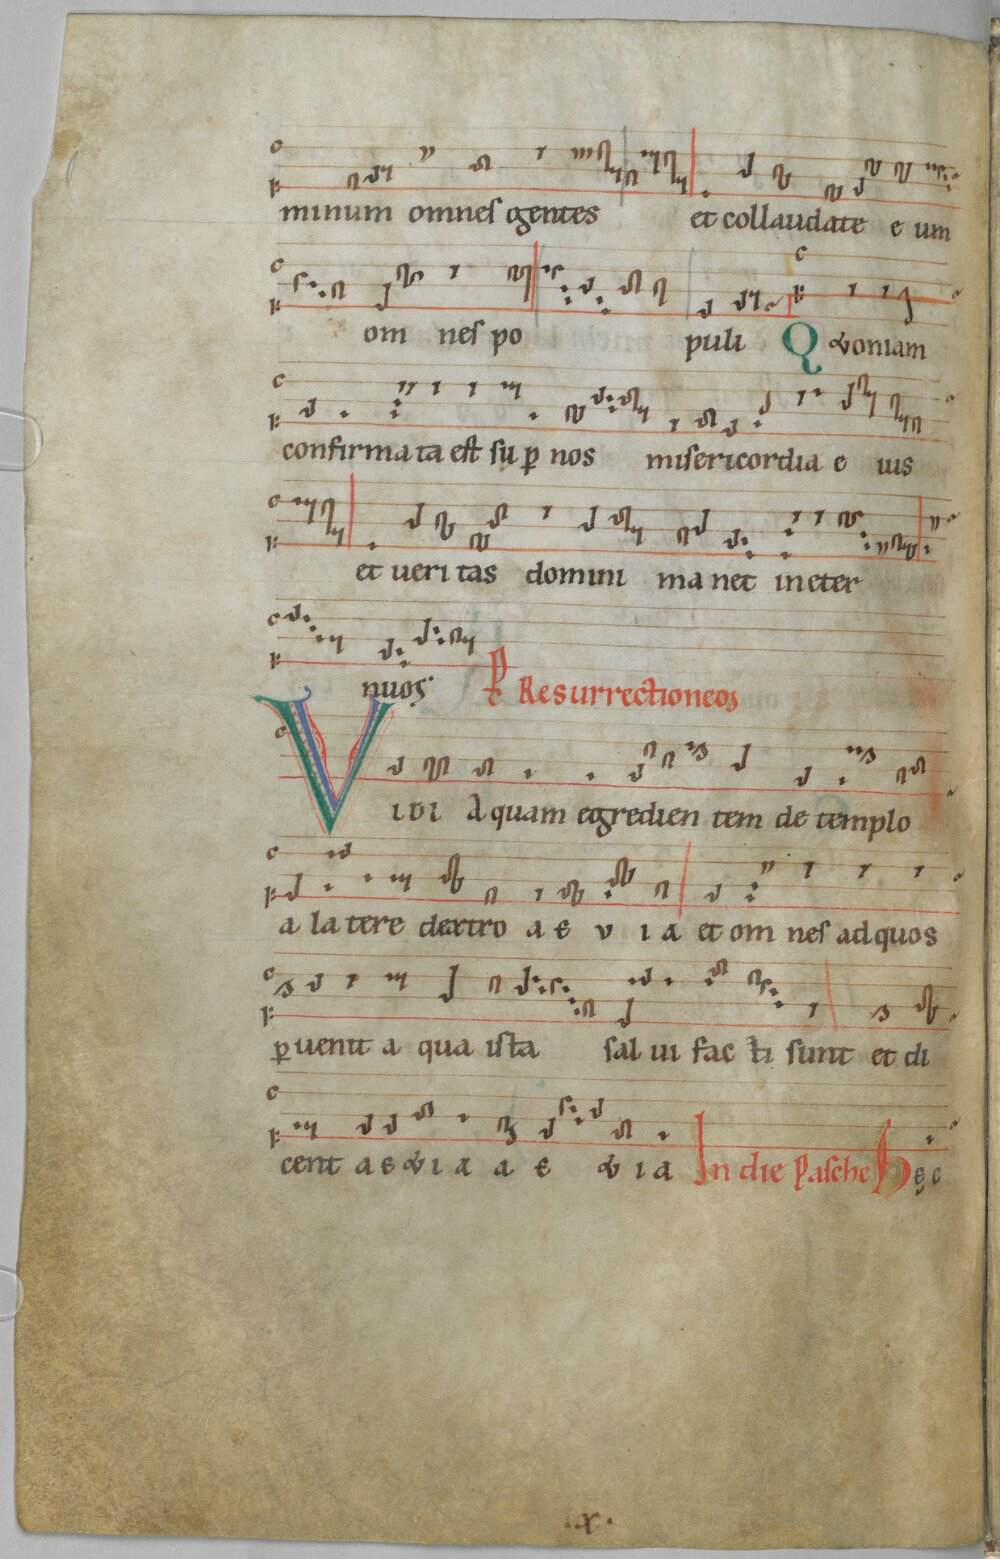 minum omnes gentes et collaudate e um
om nes po puli Quoniam
confirmata est sup nos misericordia e ius
et veritas domini manet in eter
num P Resurrectione
VIDI Aquam egredien tem de templo
a latere dextro a e v i a et om nes ad quos
p uenit a qua ista sal ui fac ti sunt et di
cent a e v i a a e v i a In die Pasche Hec
.x.